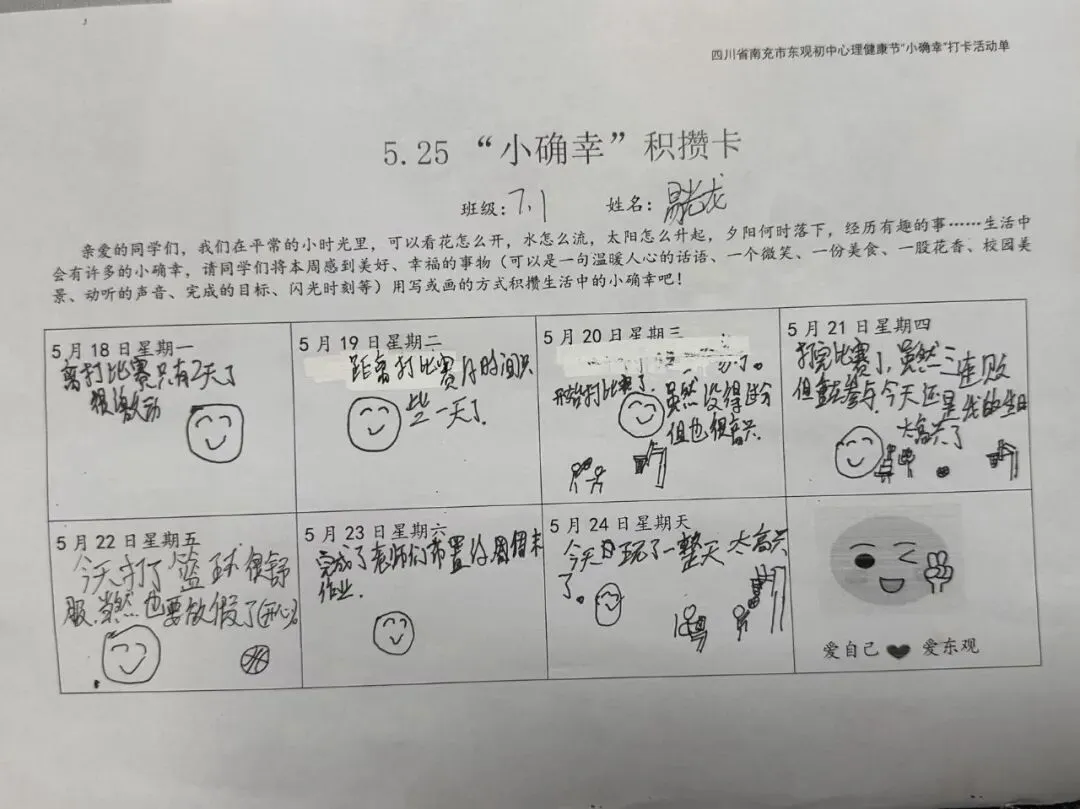 四川省南充市东观初中心理健康节“小确幸”打卡活动单
5.25 “小确幸”积攒卡
班级：7.1 姓名：龙
亲爱的同学们，我们在平常的小时光里，可以看花怎么开，水怎么流，太阳怎么升起，夕阳何时落下，经历有趣的事……生活中
会有许多的小确幸，请同学们将本周感到美好、幸福的事物（可以是一句温暖人心的话语、一个微笑、一份美食、一股花香、校园美
景、动听的声音、完成的目标、闪光时刻等）用写或画的方式积攒生活中的小确幸吧！
5月18日星期一
离打比赛只有2天了
很激动
5月19日星期二
距离打比赛的时间只
一天了
5月20日星期三
了。
开始打比赛了，虽然没得
但也很高兴.
5月21日星期四
打完比赛了，虽然三连败
但参与.今天还是我的生日
太高兴了
5月22日星期五
今天打了篮球很舒
服.当然也要放假了(开心)。
5月23日星期六
完成了老师们布置的周末
作业.
5月24日星期天
今天玩了一整天 太高兴
了。
爱自己 爱东观